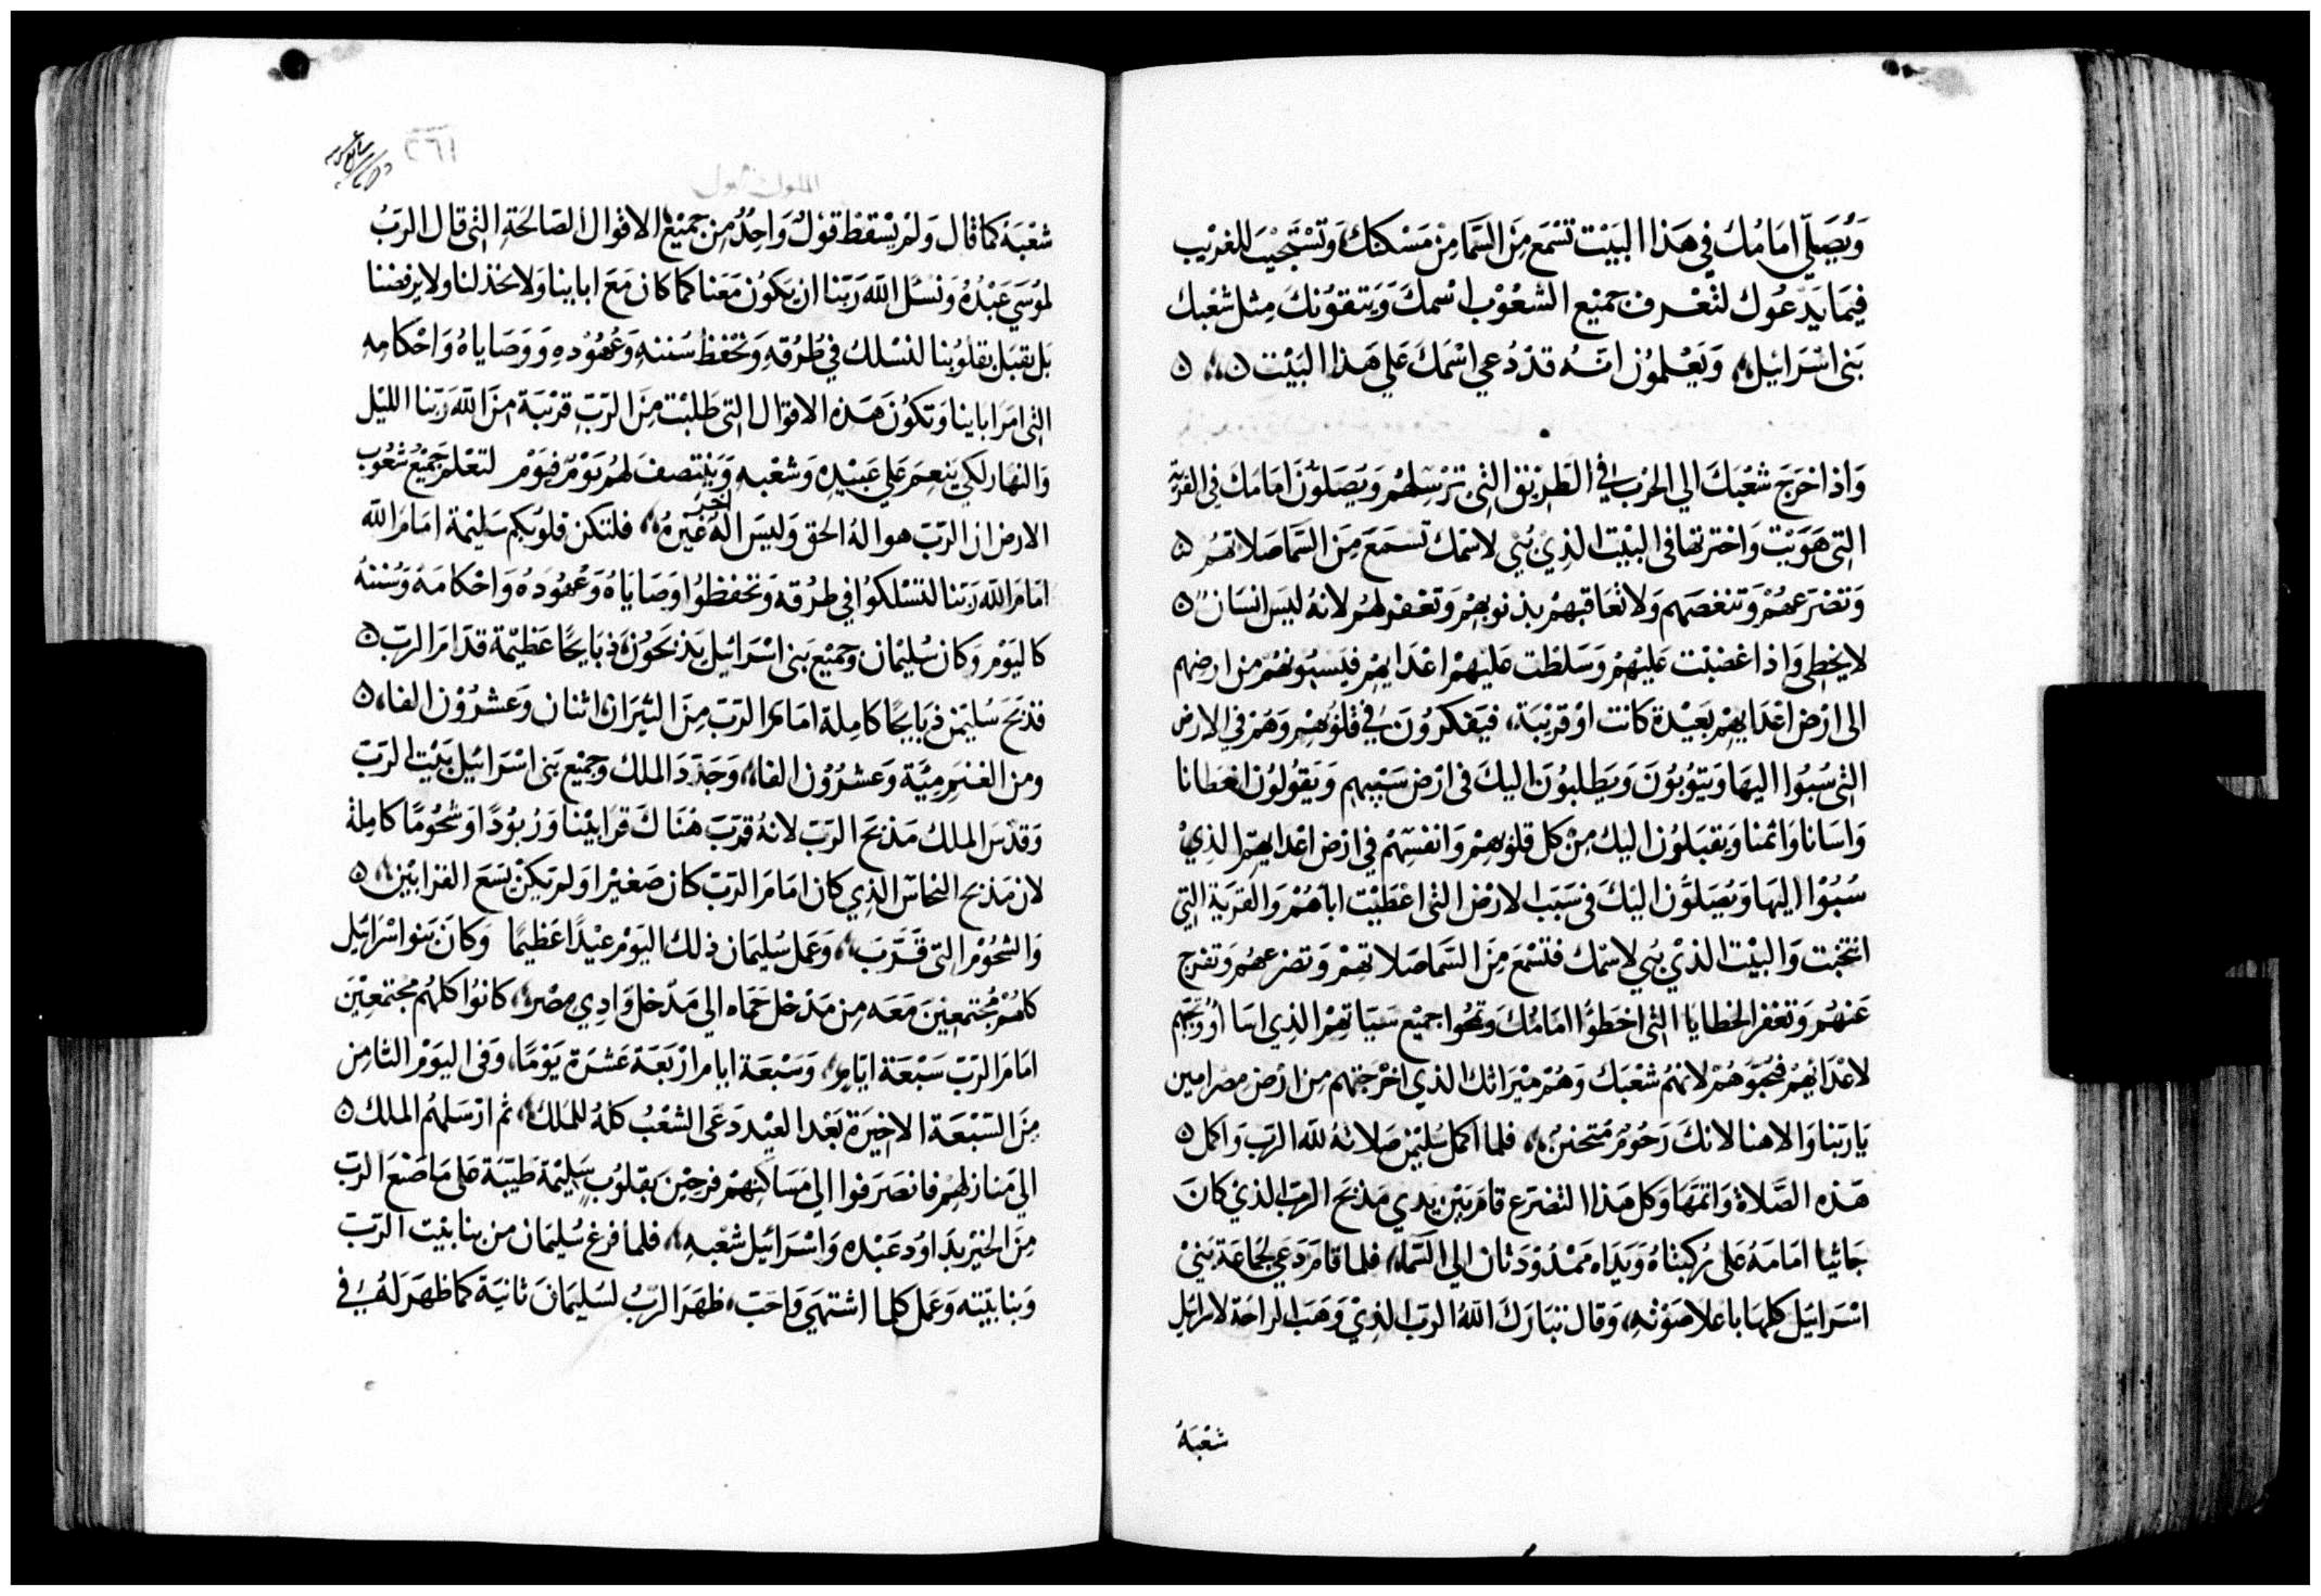 وَيُصَلّي امَامُكَ فِي هَذا البَيْت تَسْمَع مِنَ السَّمَا مِنْ مَسْكنكَ وَتَسْتَجيْبَ للغَريْب
فِيمَا يَدْعُوك لتَعْرف جَميْع الشعُوْب اسْمكَ وَيَتقوُنكَ مِثل شعْبك
بَني اسْرَائيل وَيَعْلموُن انهُ قدْ دُعي اسْمَكَ عَلي هَذا البَيْت
وَاذا خرَجَ شعْبَكَ الي الحَرْب في الطَريْق التي ترْسِلهُمْ وَيُصَلوُنَ امَامَكَ في القريَة
التي هَوَيْت وَاخترتها في البَيْت الذِي بُني لاسْمك تسمَعَ مِنَ السَّمَا صَلاتهُم
وَتضرَعهُمْ وَتنغصَهم وَلا تعَاقبهمْ بذنوبهمْ وَتغفر لهُمْ لانهُ ليسَ انسَان
لا يخطي وَاذا غضبْت عَليْهمْ وَسَلطت عَليْهمْ اعْدَايهمْ فيَسبُونهُمْ من ارضهم
الي ارْض اعْدَايهمْ بَعيْدة كانت اوْ قريْبَة، فيَفكرُونَ في قلوُبهمْ وَهُمْ في الارض
التي سُبُوا اليهَا وَيتوُبُونَ وَيَطلبوُنَ اليكَ في ارْض سَبْيهم وَيَقولوُن اخطانا
وَاسَانا وَاثمنا وَيقبَلوُن اليكَ مِنْ كل قلوبهمْ وَانفسِهُم في ارْض اعْدايهم الذِيْ
سُبُوْا اليهَا وَيُصَلوُن اليْكَ في سَبَب الارْض التي اعْطيْت ابَاهُمْ وَالقريَة التي
انتخبْت وَالبيْت الذيْ بُني لاسْمك فتسْمَعَ مِنَ السَّمَا صَلاتهمْ وَتضرعهُم وَتفرج
عَنهُمْ وَتغفر الخطايَا التي اخطَؤا امَامُكَ وَتمحُوا جميْع سَيّاتهمْ الذِي اسَا
لاعْدَائهُمْ لانهُم شعْبَكَ وَهُمْ ميْرَاثك الذي اخرَجتهم مِن ارْض مصر امين
يَا ربّنا وَالاهنا لانكَ رَحُومٌ مُتحننٌ، فلما اكمل سُليمن صَلاتهُ لله الربّ وَاكمل
هَذه الصَّلاة وَاتمَّهَا وَكل هَذا التضرَع قامَ بَيْن يدي مَذبَحَ الربّ الذيْ كانَ
جَاثيا امَامَهُ عَلي رُكبتاهُ وَيدَاه مَمْدُوْدتان الي السَّمَا، فلما قامَ دَعي لجَمَاعَة بَنيْ
اسْرَائيل كلهَا باعْلا صَوْتهِ، وَقال تبَارَكَ اللهُ الربّ الذِيْ وَهَبَ الرَاحَة لاسرَائيل
شعْبَهُ
٢٦١
الملوك الاول
شعْبَهُ كمَا قال وَلمْ يسْقط قوْلٌ وَاحِدٌ مِن جَميْع الاقوال الصَالحَةِ التي قال الرَبُّ
لموُسَي عَبْدُهُ وَنسَل الله رَبّنا ان يكوُن مَعَنا كما كان مَعَ اباينا وَلا يخذلنا ولا يرفضنا
بَل يقبَل بقلوُبُنا لنسْلك في طُرُقهِ وَنحْفظ سُننهِ وَعُهُوُدهِ وَوَصَاياهُ وَاحْكامهِ
التي امَرَ اباينا وَتكوُنَ هَذه الاقوَال التي طلبْت مِنَ الرَبّ قريْبَة مِنَ الله رَبّنا الليْل
وَالنهار لكي ينعِمَ عَلي عَبيْدهِ وَشعْبهِ وَيَنْتصفَ لهُم يوْمٌ فيَوْم لتعْلم جَميْع شعُوب
الارض ان الرَبّ هو الهُ الحق وَليسَ الهٌ اخر غيْرهُ، فلتكن قلوُبكم سَليْمة امَامَ الله
امَامَ الله رَبّنا لتسْلكوُا في طرُقه وَتحفظوُا وَصَايَاهُ وَعُهُوُدهُ وَاحْكامهُ وَسُننهُ
كاليَوْم وَكان سُليْمان وَجميْع بَني اسْرَائيل يَذبَحُونَ ذبَايحًا عَظيْمَة قدَامَ الربّ
فذبَحَ سُليْمن ذبَايحًا كامِلة امَامَ الربّ مِنَ الثيرَان اثنان وَعشرُوْن الفا،
ومن الغنم مِيَّة وَعشرُوُن الفا، وَجَدَدَ الملك وَجميْع بَني اسْرَائيْل بَيْت الربّ
وَقدّسَ الملكُ مَذبَحَ الربّ لانهُ قرّبَ هُنَاكَ قرَابيْنا وَزبُوُدًا وَشحُوْمًا كامِلة
لان مَذبح النحاس الذِي كان امَامَ الربّ كان صَغيْرا وَلم يَكنْ يَسَعَ القرَابيْن
وَالشحُوْم التي قرّبَ، وَعَمل سُليمَان ذلك اليَوْم عيْدًا عَظيمًا وَكانَ بَنو اسْرَائيل
كلهُمْ مُجْتمعيْنَ مَعَه مِن مَدْخل حَمَاه الي مَدْخل وَادِي مِصْر، كانوُا كلهُم مُجْتمعيْنَ
امَامَ الربّ سَبْعَة ايّامٍ، وَسَبْعَة ايام ارْبَعَة عَشرَة يَوْمًا، وَفي اليَوْم الثامِن
مِنَ السَبْعَة الاخيْرَة بَعْد العيْد دَعَي الشعْبُ كلهُ للملك، ثم ارْسَلهُم الملك
الي مَنازلهمْ فانصَرَفوا الي مَسَاكنهمْ فرحيْنَ بقلوُبٍ سَليْمَة طيّبَة عَلي مَا صَنعَ الربّ
مِنَ الخيْر بدَاوُد عَبْده وَاسْرَائيل شعْبهِ، فلما فرغ سُليمَان من بنا بيْت الربّ
وَبنا بيْته وَعَمل كلما اشتهَي وَاحَبّ، ظهَرَ الربُّ لسُليمَانَ ثانيَة كمَا ظهَرَ لهُ في